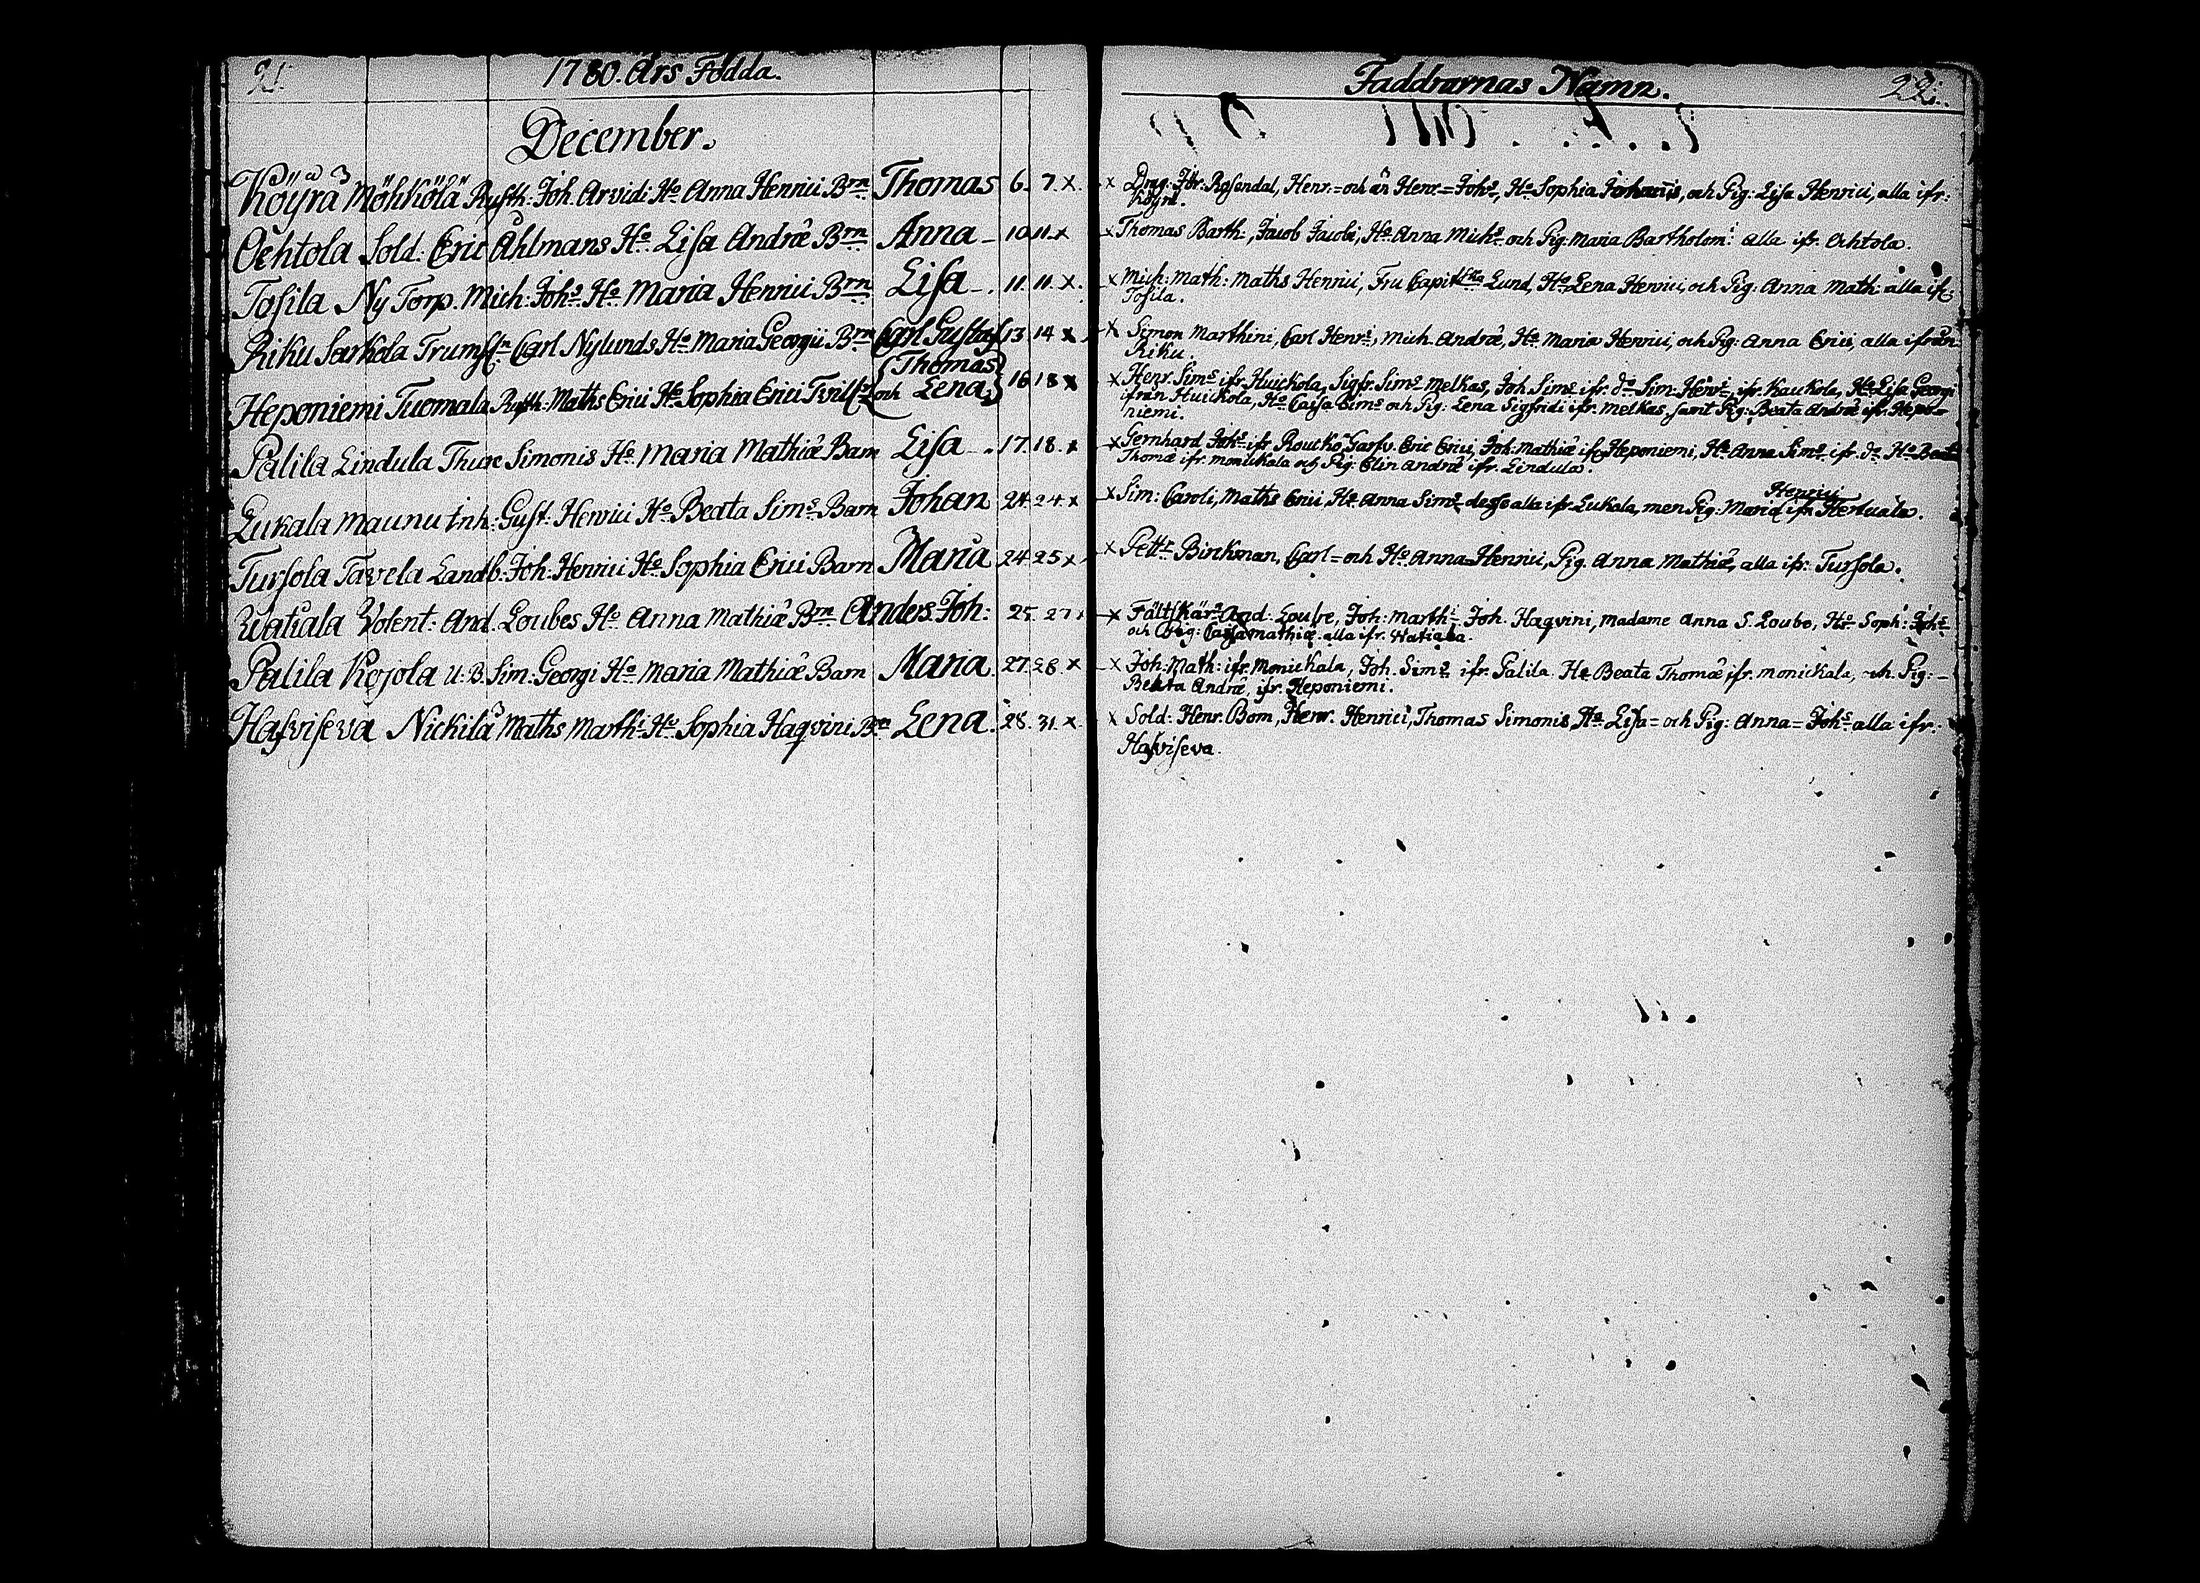 21.
1780. Års Födda.
December.
Köyrä Möhkölä Rusth. Joh. Arvidi Ho Anna Henrici Brn Thomas 6. 7. x
Ochtola Sold: Eric Åhlmans Ho Lisa Andræ Brn Anna 10. 11. x
Tosila Ny Torp. Mich: Johs Ho Maria Henrici Brn Lisa 11. 11. x
Riku Sarkola Carl Nylunds Ho Maria Georgii Brn Carl Gustaf 13 14 x
Heponiemi Tuomala Rusth. Maths Erici Ho Sophia Erici {Thomas
och Lena} 16 18 x
Palila Lindula Simonis Ho Maria Mathiæ Barn Lisa 17. 18. x
Lukala Maunu Inh: Gust. Henrici Ho Beata Sims Barn Johan 24 24 x
Tursola Tavela Landb. Joh: Henrici Ho Sophia Erici Barn Maria 24 25 x
Watiala Volent: And. Loubes Ho Anna Mathiæ Brn Anders Joh: 25. 27
Palila Kojola U: B. Sim: Georgi Ho Maria Mathiæ Barn Maria 27. 28. x
Hasviseva Nickilä Maths Marthi Ho Sophia Haqvini Brn Lena 28. 31. x
Faddrarnas Namn. 22.
x Drag: Rosendal, Henr:= och än Henr:= Johs, Ho Sophia Johanis, och Pig: Lisa Henrici, alla ifr:
Köyrä.
x Thomas Barth:, Jacob Jacobi, Ho Anna Michs och Pig. Maria Bartholom: alla ifr. Ochtola.
x Mich: Math: Maths Henrici, Fru Lund, Ho Lena Henrici, och Pig: Anna Math: alla ifr:
Tosila.
x Simon Marthini, Carl Henri, Mich. Andræ, Ho Maria Henrici, och Pig: Anna Erici, alla ifrån
Riku.
x Henr. Sims ifr. Huickola, Sigfr. Sims Melkas, Joh. Sims ifr. do Sim: Henri, ifr. Kaukola, Ho Lisa Georgi
ifrån Huickola, Ho Caisa Sims och Pig: Lena Sigfridi ifr. Melkas, samt Pig: Beata Andræ ifr. Hepo=
niemi.
x Gernhard Johs ifr. Routko, Eric Erici, Joh: Mathiæ ifr. Heponiemi, Ho Anna Sims ifr. do Ho Beata
Thomæ ifr. Monickala och Pig: Elin Andræ ifr. Lindula.
x Sim: Caroli, Maths Erici, Ho Anna Sims desse alla ifr. Lukala, men Pig: Maria Henrici ifr. Hertuala.
x Pettr Birckman, Carl= och Ho Anna= Henrici, Pig. Anna Mathiæ, alla ifr: Tursola.
x Fältskär And: Loube, Joh: Marthi Joh. Haqvini, Madame Anna S. Loube, Ho Soph: Johs
och Pig: Caisa Mathiæ alla ifr. Watiala.
x Joh: Math: ifr. Monickala, Joh. Sims ifr. Palila. Ho Beata Thomæ ifr. Monickala, och Pig:
Beata Andræ, ifr. Heponiemi.
x Sold: Henr. Bom, Henr. Henrici, Thomas Simonis, Ho Lisa= och Pig: Anna= Johs alla ifr:
Hasviseva.